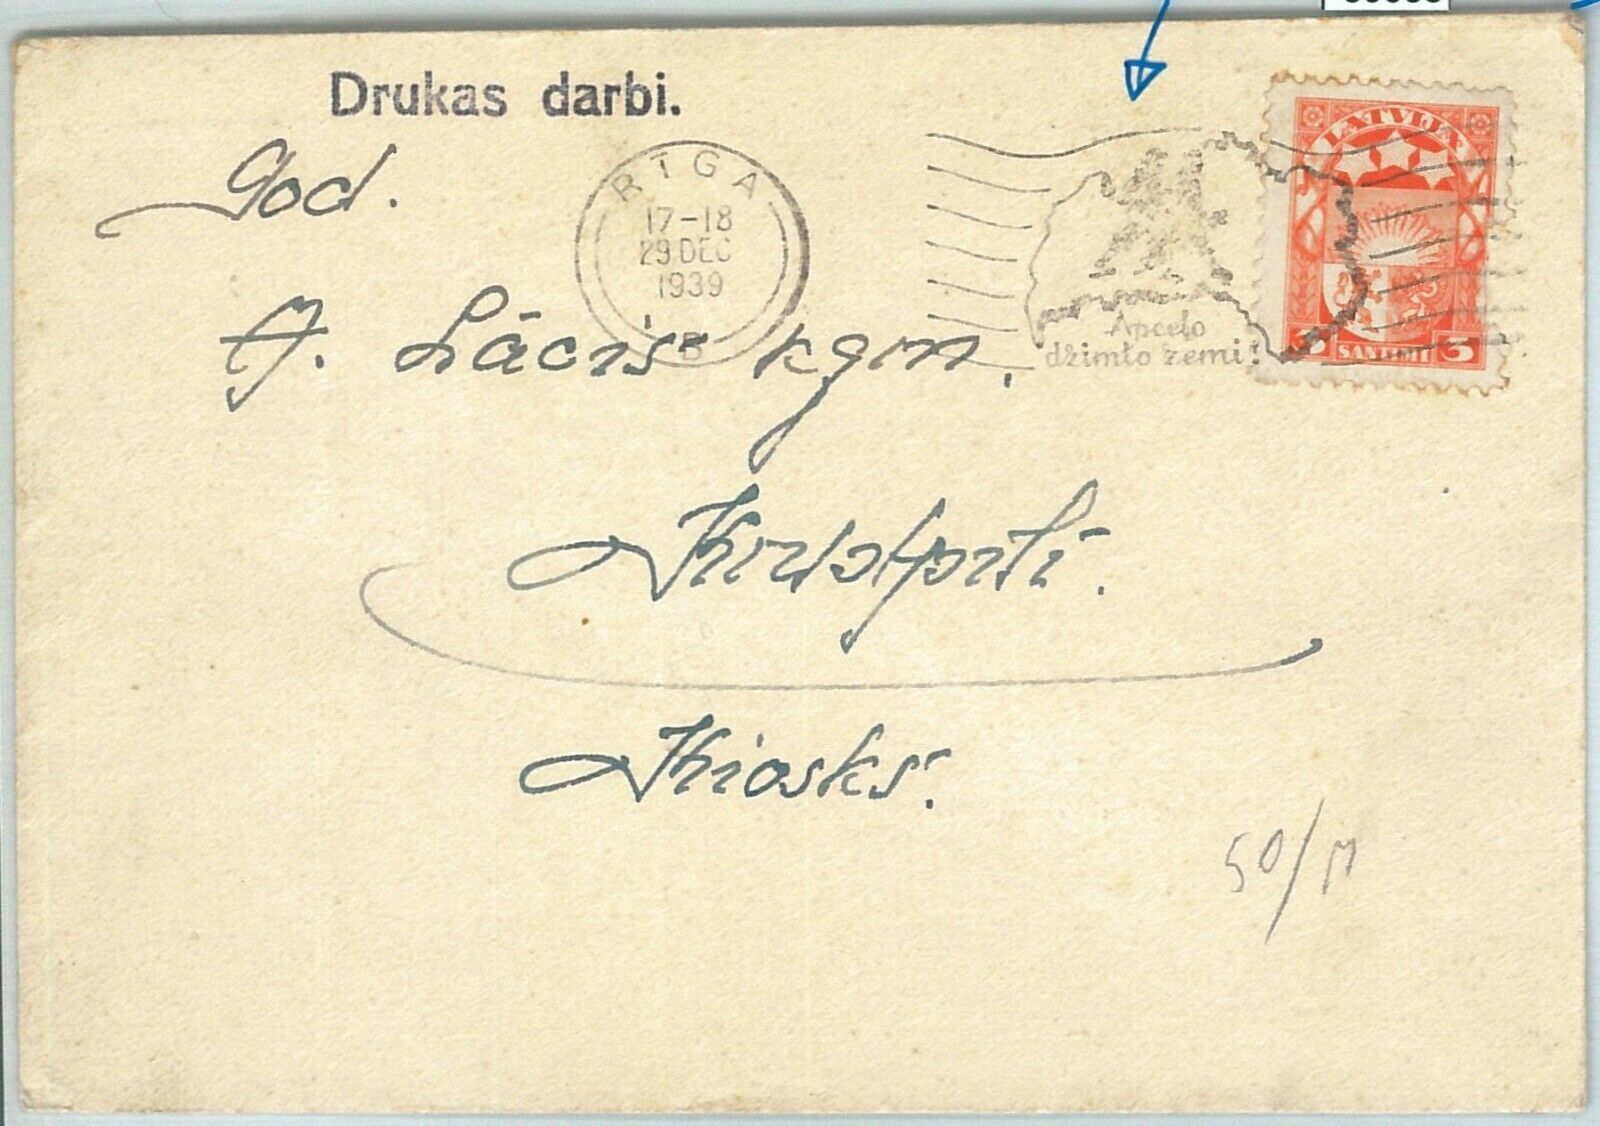 Drukas darbi.
God.
RĪGA
17-18
29 DEC
1939
B
LATVIJA
3 SANTIMI 3
Apceļo
dzimto zemi!
A. Lācis kgm.
Kiosks.
50/M